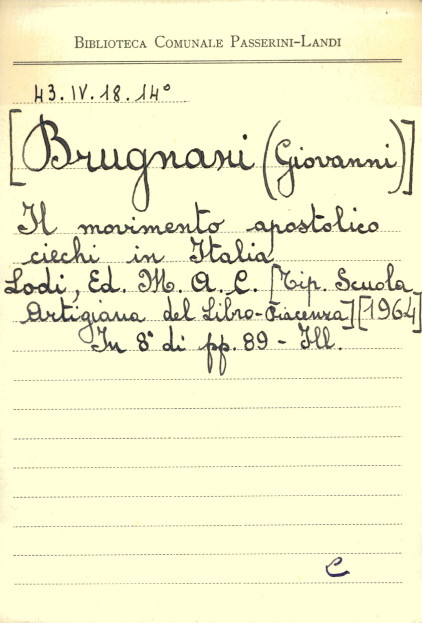 BIBLIOTECA COMUNALE PASSERINI-LANDI
43.IV.18.14°
[Brugnani (Giovanni)]
Il movimento apostolico
ciechi in Italia
Lodi, Ed. M. A. C. [Tip. Scuola
Artigiana del Libro-Piacenza] [1964]
In 8° di pp. 89 - Ill.
C